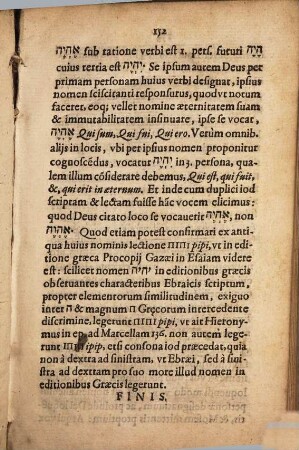 152
אהיה sub ratione verbi est 1. pers. futuri היה
cuius tertia est יהיה. Se ipsum autem Deus per
primam personam huius verbi designat, ipsius
nomen sciscitanti responsurus, quod vt notum
faceret, eoq; vellet nomine æternitatem suam
& immutabilitatem insinuare, ipse se vocat,
אהיה Qui sum, Qui fui, Qui ero. Verùm omnib.
alijs in locis, vbi per ipsius nomen proponitur
cognoscẽdus, vocatur יהיה in 3. persona, qua-
lem illum cõsiderate debemus, Qui est, qui fuit,
&, qui erit in æternum. Et inde cum duplici iod
scriptam & lectam fuisse hãc vocem elicimus:
quod Deus citato loco se vocauerit אהיה, non
אהוה. Quod etiam potest confirmari ex anti-
qua huius nominis lectione πιπι pipi, vt in edi-
tione græca Procopij Gazæi in Esaiam videre
est: scilicet nomen יהיה in editionibus græcis
obseruantes characteribus Ebraicis scriptum,
propter elementorum similitudinem, exiguo
inter ה & magnum Π Gręcorum intercedente
discrimine, legerunt πιπι pipi, vt ait Hierony-
mus in ep. ad Marcellam 136. non autem lege-
runt ιπιπ ipip, etsi consona iod præcedat, quia
non à dextra ad sinistram, vt Ebræi, sed à sini-
stra ad dextram pro suo more illud nomen in
editionibus Græcis legerunt.
FINIS.